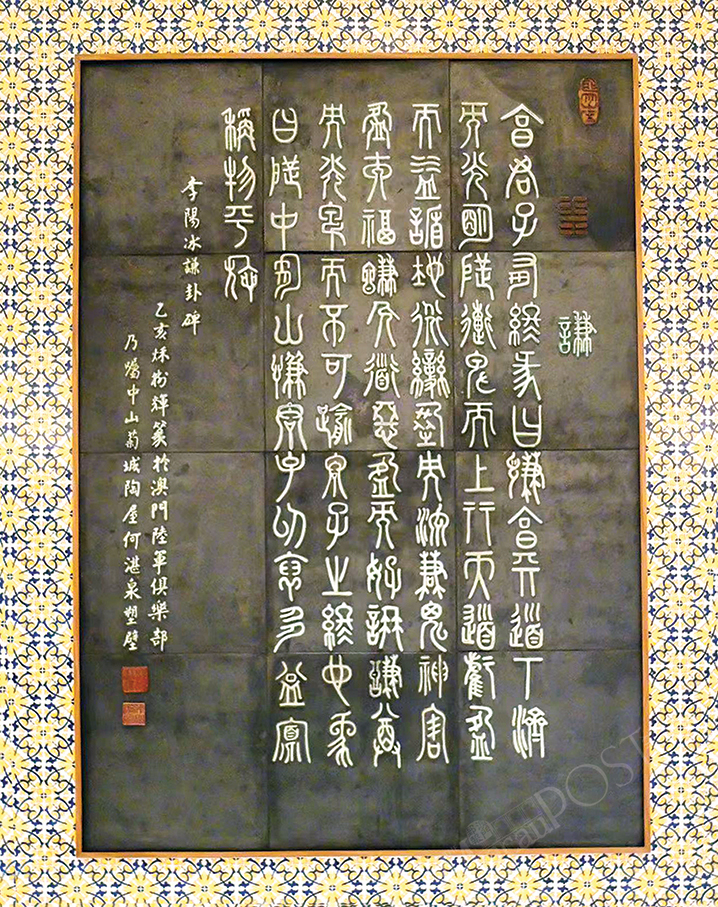 謙
亨君子有終彖曰謙亨天道下濟
而光明地道卑而上行天道虧盈
而益謙地道變盈而流謙鬼神害
盈而福謙人道惡盈而好謙謙尊
而光卑而不可踰君子之終也象
曰地中有山謙君子以裒多益寡
稱物平施
李陽冰謙卦碑
乙亥秋輝篆於澳門陸軍俱樂部
乃囑中山菊城陶屋何湛泉塑壁
POST